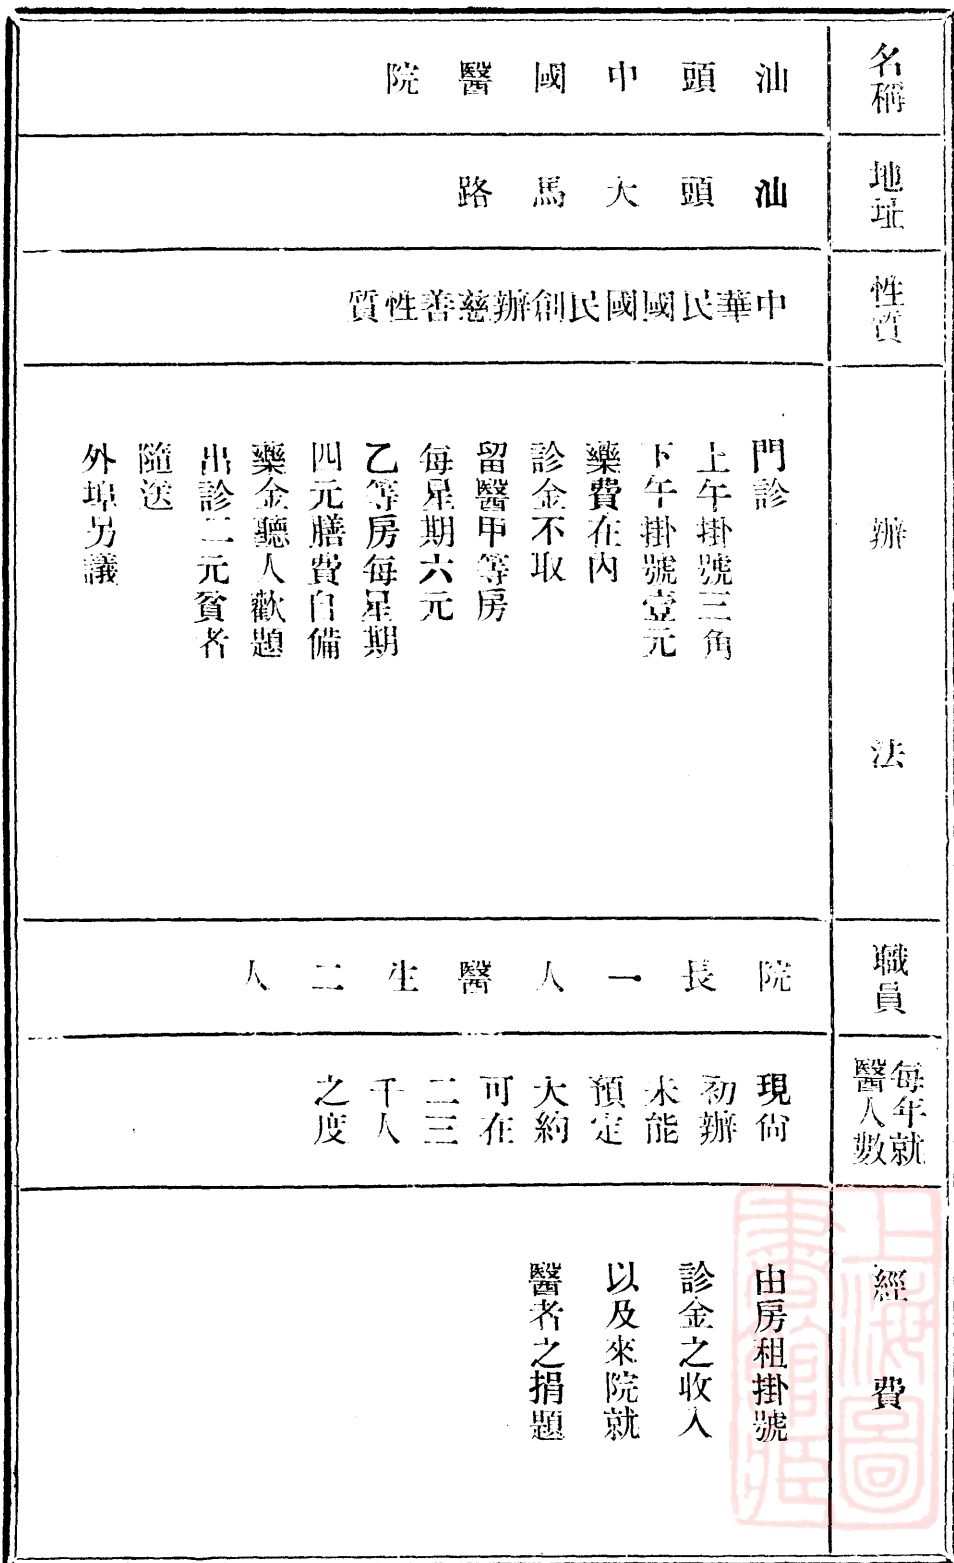 名稱
汕頭中國醫院
地址
汕頭大馬路
性質
中華民國國民創辦慈善性質
辦法
門診
上午掛號三角
下午掛號壹元
藥費在內
診金不取
留醫甲等房
每星期六元
乙等房每星期
四元膳費自備
藥金聽人歡題
出診二元貧者
隨送
外埠另議
職員
院長一人醫生二人
每年就
醫人數
現尙
初辦
未能
預定
大約
可在
二三
千人
之度
經費
由房租掛號
診金之收入
以及來院就
醫者之捐題
上海圖
書館藏